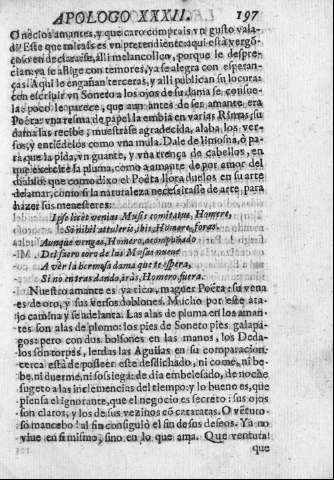 APOLOGO XXXII. 197
O necios amantes, y que caro comprais vn gusto vala-
di! Este que mirais es vn pretendiente: aqui està vergõ-
çoso en declararse, alli melancolico, porque le despre-
cian: ya se aflige con temores, ya se alegra con esperan-
ças. Aqui le engañan terceras, y alli publican su locura:
con escriuir vn Soneto a los ojos de su dama se consue-
la: poco le parece, que aun antes de ser amante era
Poëta: vna resma de papel la embia en varias Rimas, su
dama las recibe; muestrase agradecida, alaba los ver-
sos, y entiẽdelos como vna mula. Dale de limosna, ò pa-
ra que la pida, vn guante, y vna trença de cabellos, en
que exercite la pluma, como amante de por amor del
diablo: que como dixo el Poëta llora duelos en su arte
de amar, como si la naturaleza necesitasse de arte para
hazer sus menesteres:
Ipse licèt venias Musis comitatus, Homere,
Si nihil attuleris, ibis, Homere, foras.
Aunque vengas, Homero, acompañado
Del suero coro de las Musas nueue
A ver la hermosa dama que te espera,
Si no entras dando, iràs, Homero, fuera.
Nuestro amante es ya rico, maguer Poëta: su vena
es de oro, y sus versos doblones. Mucho por este ata-
jo camina y se adelanta. Las alas de pluma en los aman-
tes son alas de plomo: los pies de Soneto pies galapa-
gos: pero con dos bolsones en las manos, los Deda-
los son torpes, lerdas las Aguilas en su comparacion:
cerca està de posseer este desdichado, ni come, ni be-
be, ni duerme, ni sosiega: de dia embelesado, de noche
sugeto a las inclemencias del tiempo: y lo bueno es, que
piensa el ignorante, que el negocio es secreto: sus ojos
son claros, y los de sus vezinos cõ cataratas. O vẽturo-
so mancebo! al fin consiguiò el fin de sus deseos. Ya no
viue en si mismo, sino en lo que ama. Que ventura!
que